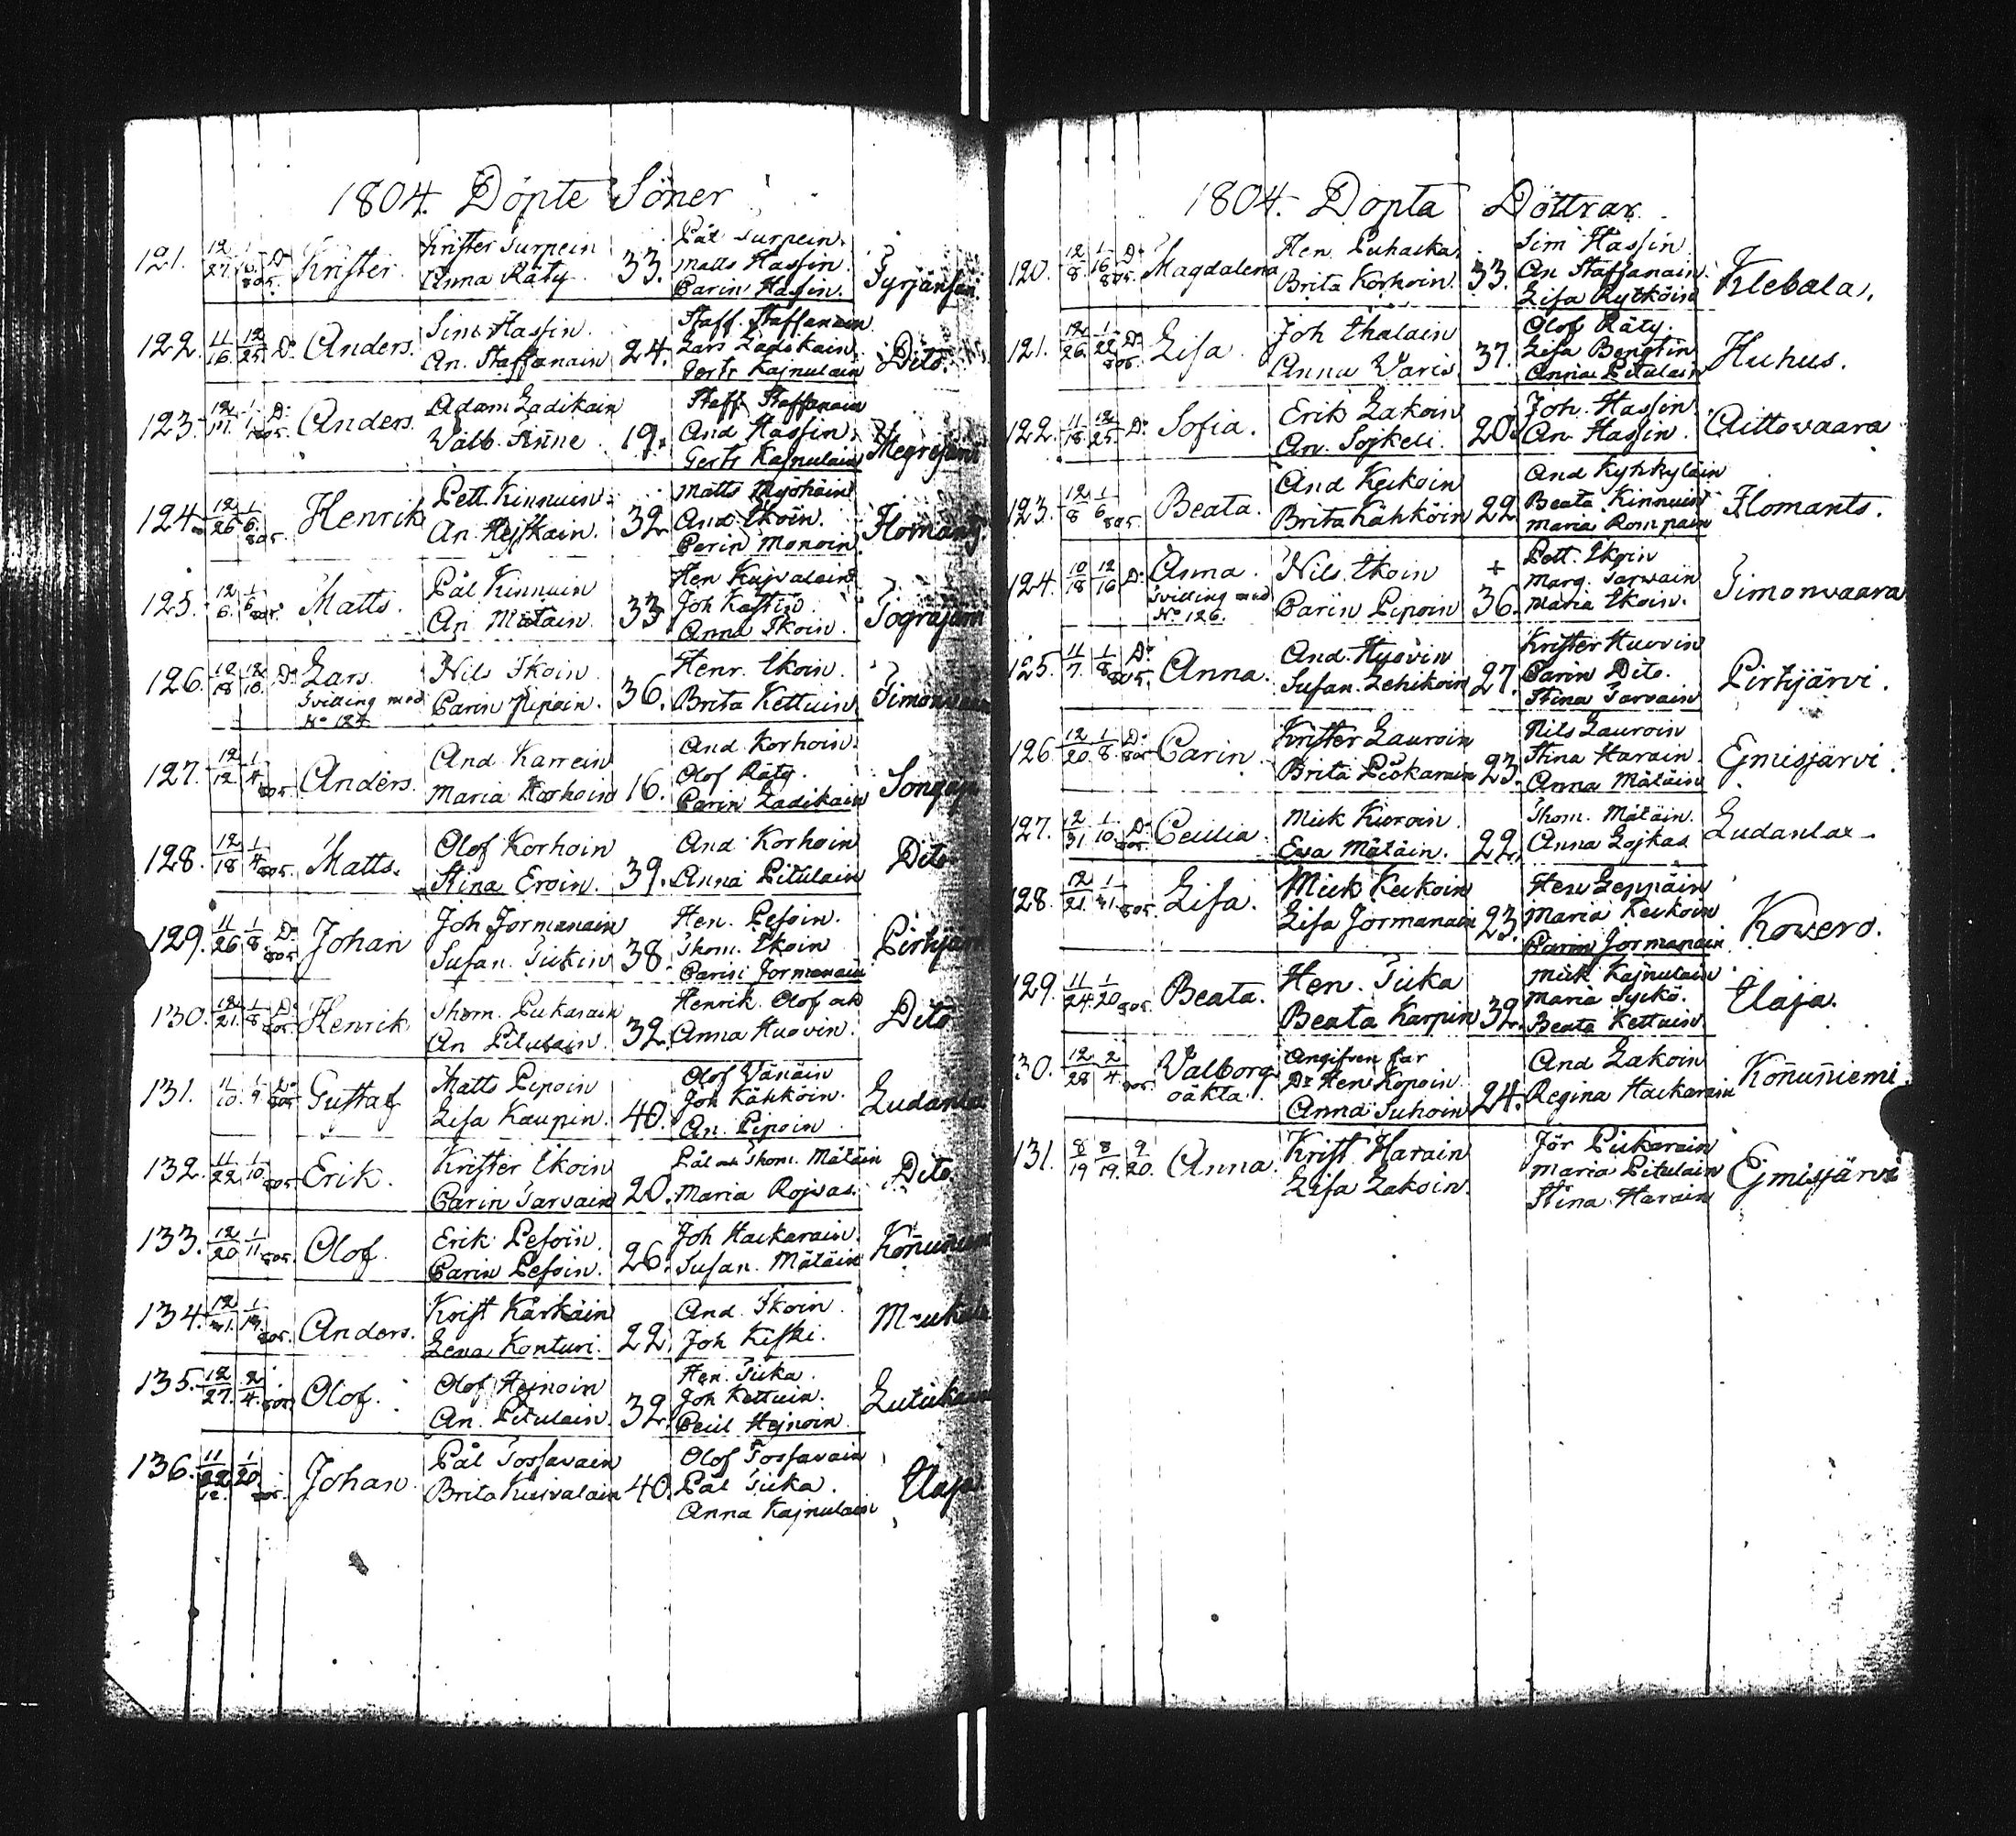 1804. Döpte Söner
121. 12/27. 1/6. 805. D:o Krister. Krister Turpein Anna Räty. 33. Pål Turpein. Matts Hassin. Carin Hassin. Tyrjänsari
122. 11/16. 12/25. D:o Anders. Sim Hassin. An. Staffanain 24. Staff. Staffanain Lars Ladikain Gertr Kajnulain Dito.
123. 12/17. 1/1. 805. D:o Anders. Adam Ladikain Walb. Tinne. 19. Staff Staffanain And Hassin. Gertr Kajnulain Megrejärvi
124. 12/26. 1/6. 805. Henrik Pett. Kinnuin. An. Hejskain. 32. Matts Myöhäin And. Ikoin. Carin Monoin. Ilomants
125. 12/6. 1/6. 805. Matts. Pål Kinnuin An Mätäin. 33. Hen Kujvalain Joh Kastin. Anna Ikoin. Togräjärvi
126. 12/18 12/16. D:o Lars. Tvilling med N:o 124 Nils Ikoin. Carin Pipoin. 36. Henr. Ikoin. Brita Kettuin. Simonvaara
127. 12/12 1/4 805. Anders. And. Karrein Maria Korhoin 16. And Korhoin. Olof Räty. Carin Ladikain Songaja
128. 12/18 1/4 805. Matts. Olof Korhoin Stina Eroin. 39. And Korhoin Anna Pitulain Dito
129. 11/26 1/8. 805 D:o Johan Joh Jormanain Susan. Tiikin 38. Hen. Pesoin. Thom. Ikoin Carin Jormanain Pirhjärvi
130. 12/21. 1/8 805. D:o Henrik Thom. Piikarain An Pitulain. 32. Henrik. Olof och Anna Huovin. Dito
131. 11/10. 1/9 805 D:o Gustaf Matts Pipoin Lisa Kaupin. 40. Olof Wänäin Joh Kähköin. An. Pipoin Ludanlax
132. 11/22. 1/10. 805. Erik. Krister Ikoin Carin Tarvain 20. Pål och Thom. Mätäin Maria Rojvas. Dito.
133. 12/20 1/11 805. Olof. Erik Pesoin. Carin Pesoin. 26. Joh Hackarain. Susan. Mätäin Koñuniemi
134. 12/31. 1/13. 805. Anders. Krist Kärkäin Lena Konturi. 22. And. Ikoin. Joh Kiski.
135. 12/27. 2/4. 805 Olof. Olof Hejnoin An. Pitulain. 32. Hen. Tiika. Joh Kettuin. Cecil Hejnoin
136. 11/22 1/20. 805. Johan. Pål Tossavain Brita Kuivalain 40. Olof Tossavain Pål Tiika. Anna Kajnulain Uaja
1804. Döpta Döttrar.
120. 12/8 1/16. 805. D:o Magdalena Hen. Puhacka. Brita Korhoin. 33. Sim Hassin An Staffanain. Lisa Rytköin Klebala.
121. 12/26. 1/22. 805. D:o Lisa. Joh Ihalain Anna Varis. 37. Olof Räty. Lisa Bengtin Anna Pitulain Huhus.
122. 11/18 12/25. D:o Sofia. Erik Lakoin An. Sojkeli. 20. Joh. Hassin. An Hassin. Aittovaara
123. 12/8 1/6 805. Beata. And Keckoin Brita Kähköin 22. And Kyhkyläin Beata Kinnuin Maria Rompain Ilomants.
124. 10/18 12/16 D:o Anna. Tvilling med N:o 126. Nils. Ikoin Carin Pipoin + 36. Pett. Ikoin Marg. Tarwain Maria Ikoin. Simonvaara
125. 11/7. 1/8. 805. D:o Anna. And. Hyövin Susan. Lehikoin 27. Krister Huovin Carin Dito. Stina Tarvain Pirhjärvi.
126. 12/20 1/8. 805 D:o Carin. Krister Lauroin Brita Piikarain 23. Nils Lauroin Stina Harain. Anna Mätäin Ejmisjärvi.
127. 12/31 1/10. 805. D:o Cecilia. Mick Kuroin. Eva Mätäin. 22. Thom. Mätäin. Anna Lojkas Ludanlax
128. 12/21. 1/31. 805. Lisa. Mick Keckoin Lisa Jormanain 23. Hen Leppäin Maria Keckoin Carin Jormanain Kovero.
129. 11/24. 1/20 805. Beata. Hen. Tiika Beata Karpin 32. Mick Kajnulain Maria Tyckö. Beata Kettuin. Uaja.
130. 12/28 2/4. 805. Walborg oäkta. Angifven far Dr: Hen Kopoin. Anna Suhoin 24. And Lakoin Regina Hackarain Koñuñiemi.
131. 8/19 8/19. 9/20. Anna. Krist Harain Lisa Lakoin. Jör Piikarain Maria Pitulain Stina Harain Ejmisjärvi